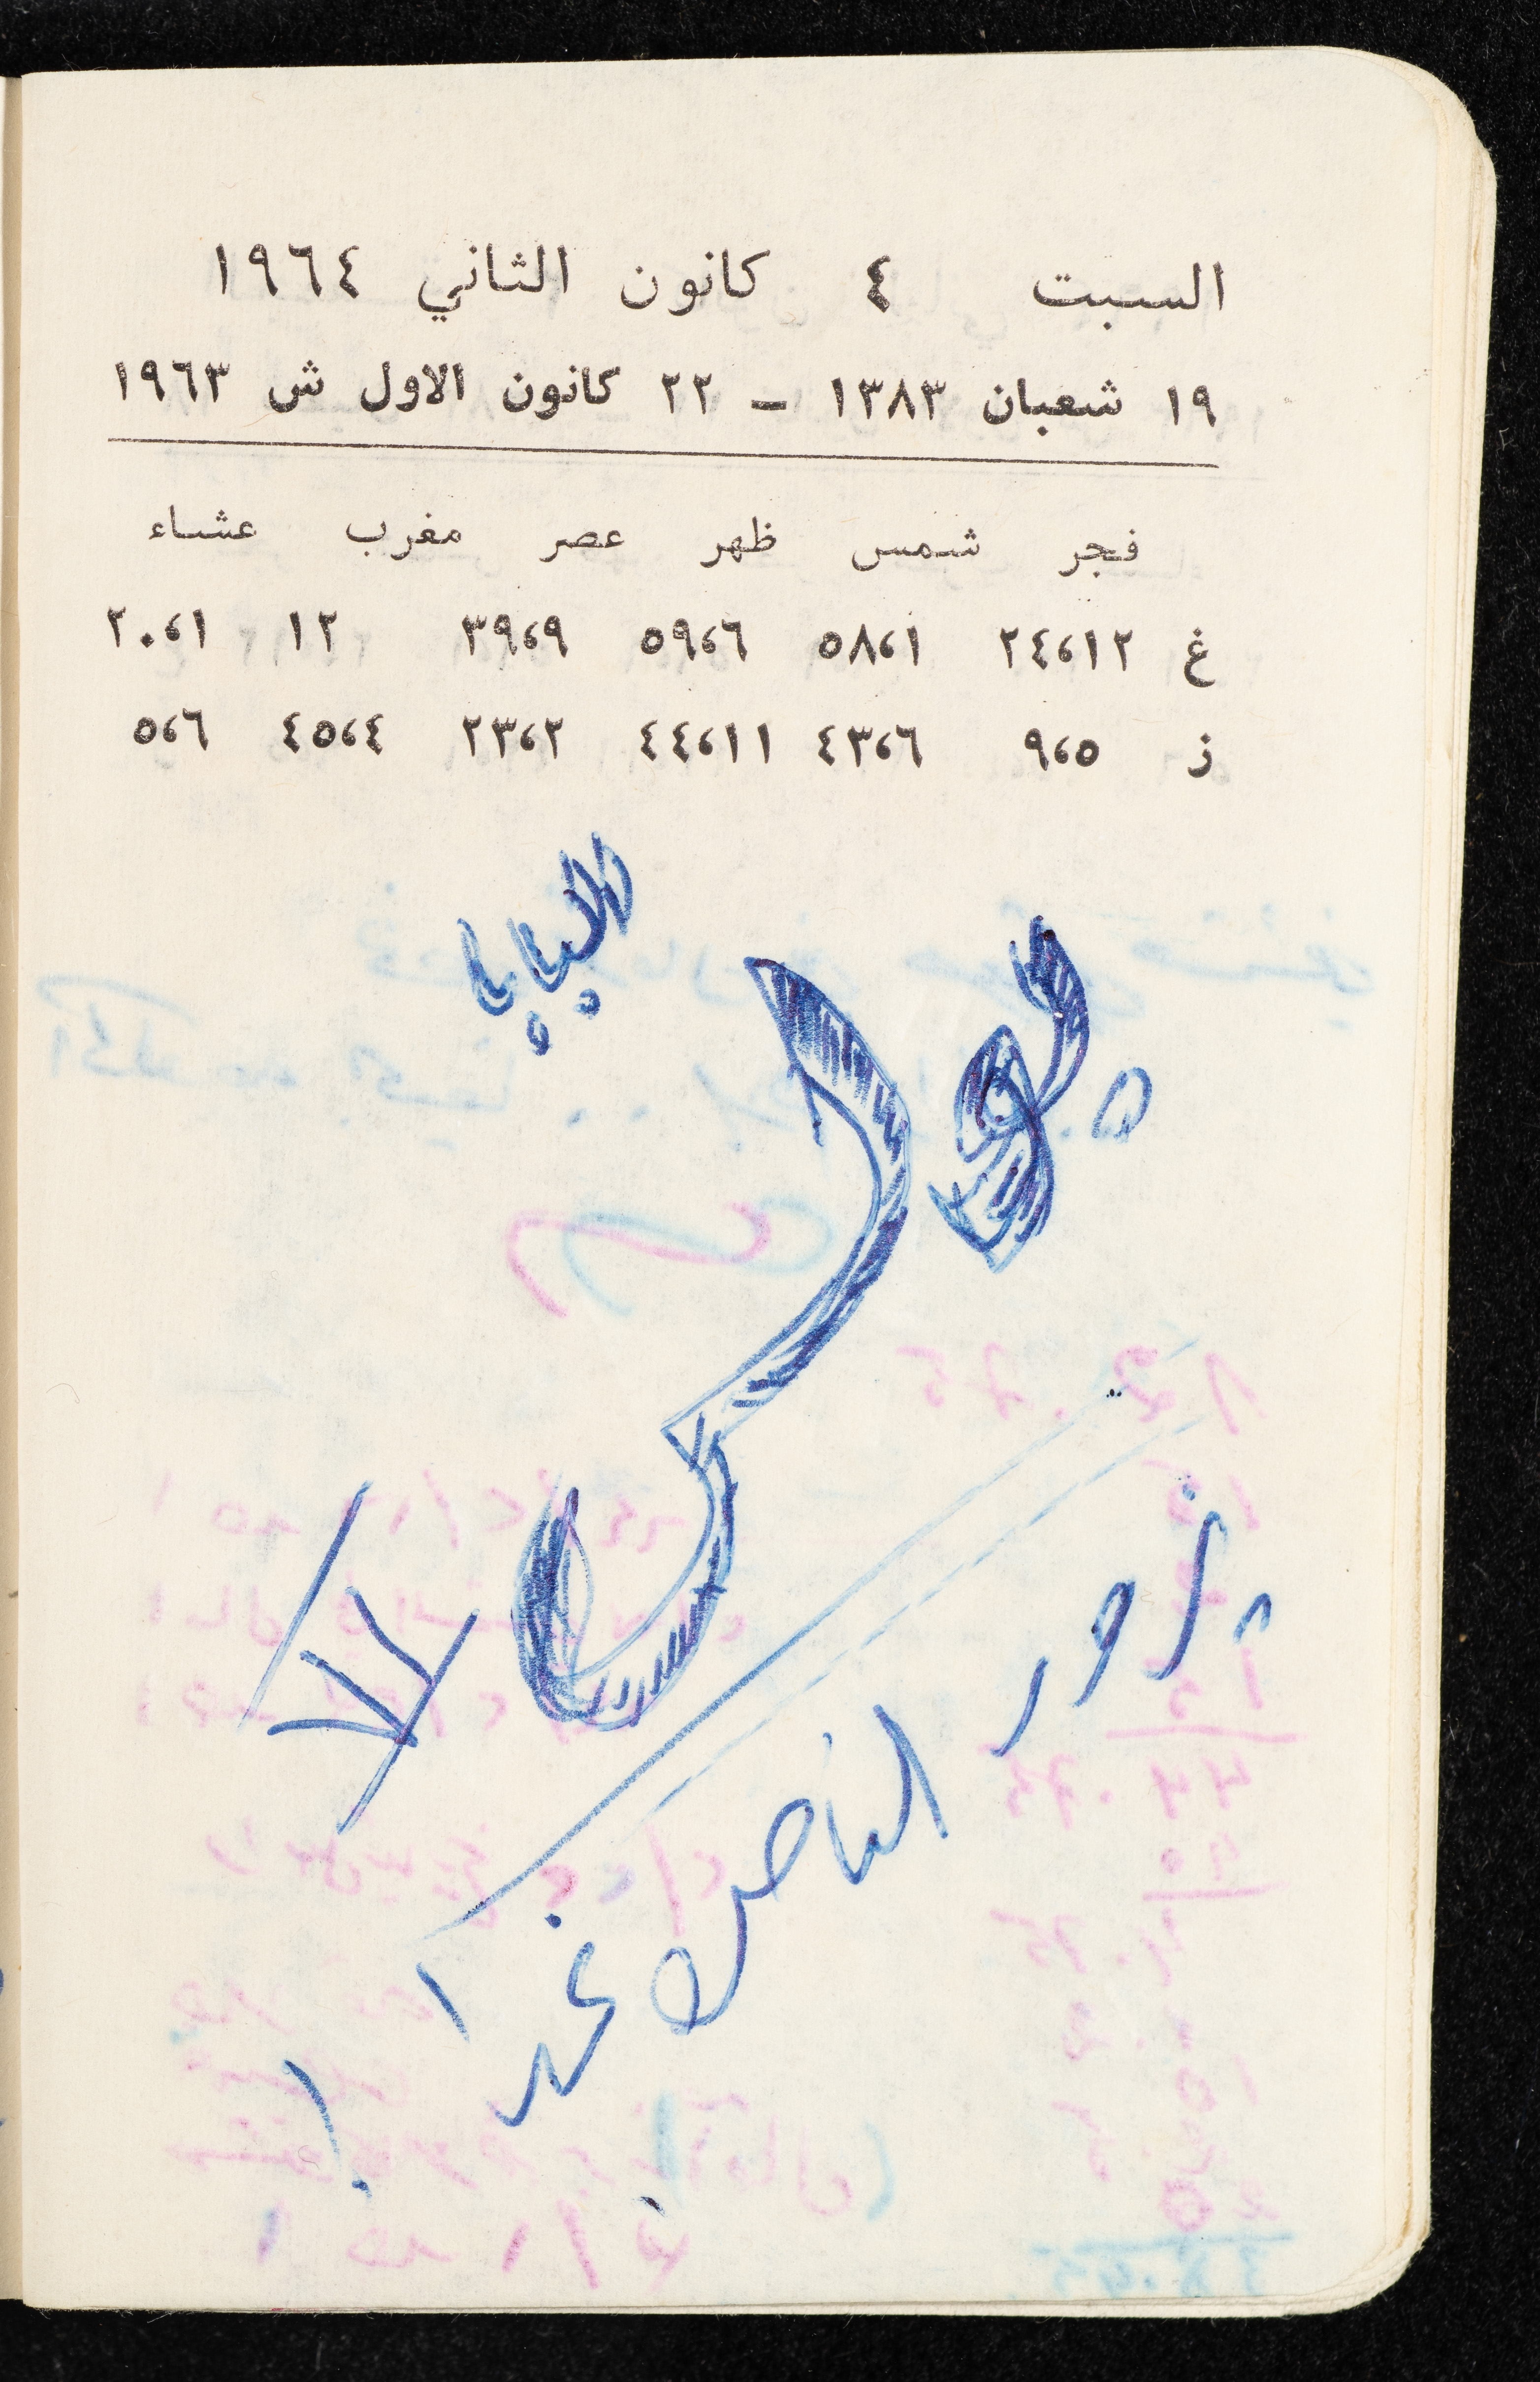 السبت ٤ كانون الثاني ١٩٦٤
١٩ شعبان ١٣٨٣ – ٢٢ كانون الاول ش ١٩٦٣
فجر شمس ظهر عصر مغرب عشاء
غ ٢٤،١٢ ٥٨،١ ٥٩،٦ ٣٩،٩ ١٢ ٢٠،١
ز ٩،٥ ٤٣،٦ ٤٤،١١ ٢٣،٢ ٤٥،٤ ٥،٦
البابا
بولس
يزور الناصرة غدا !